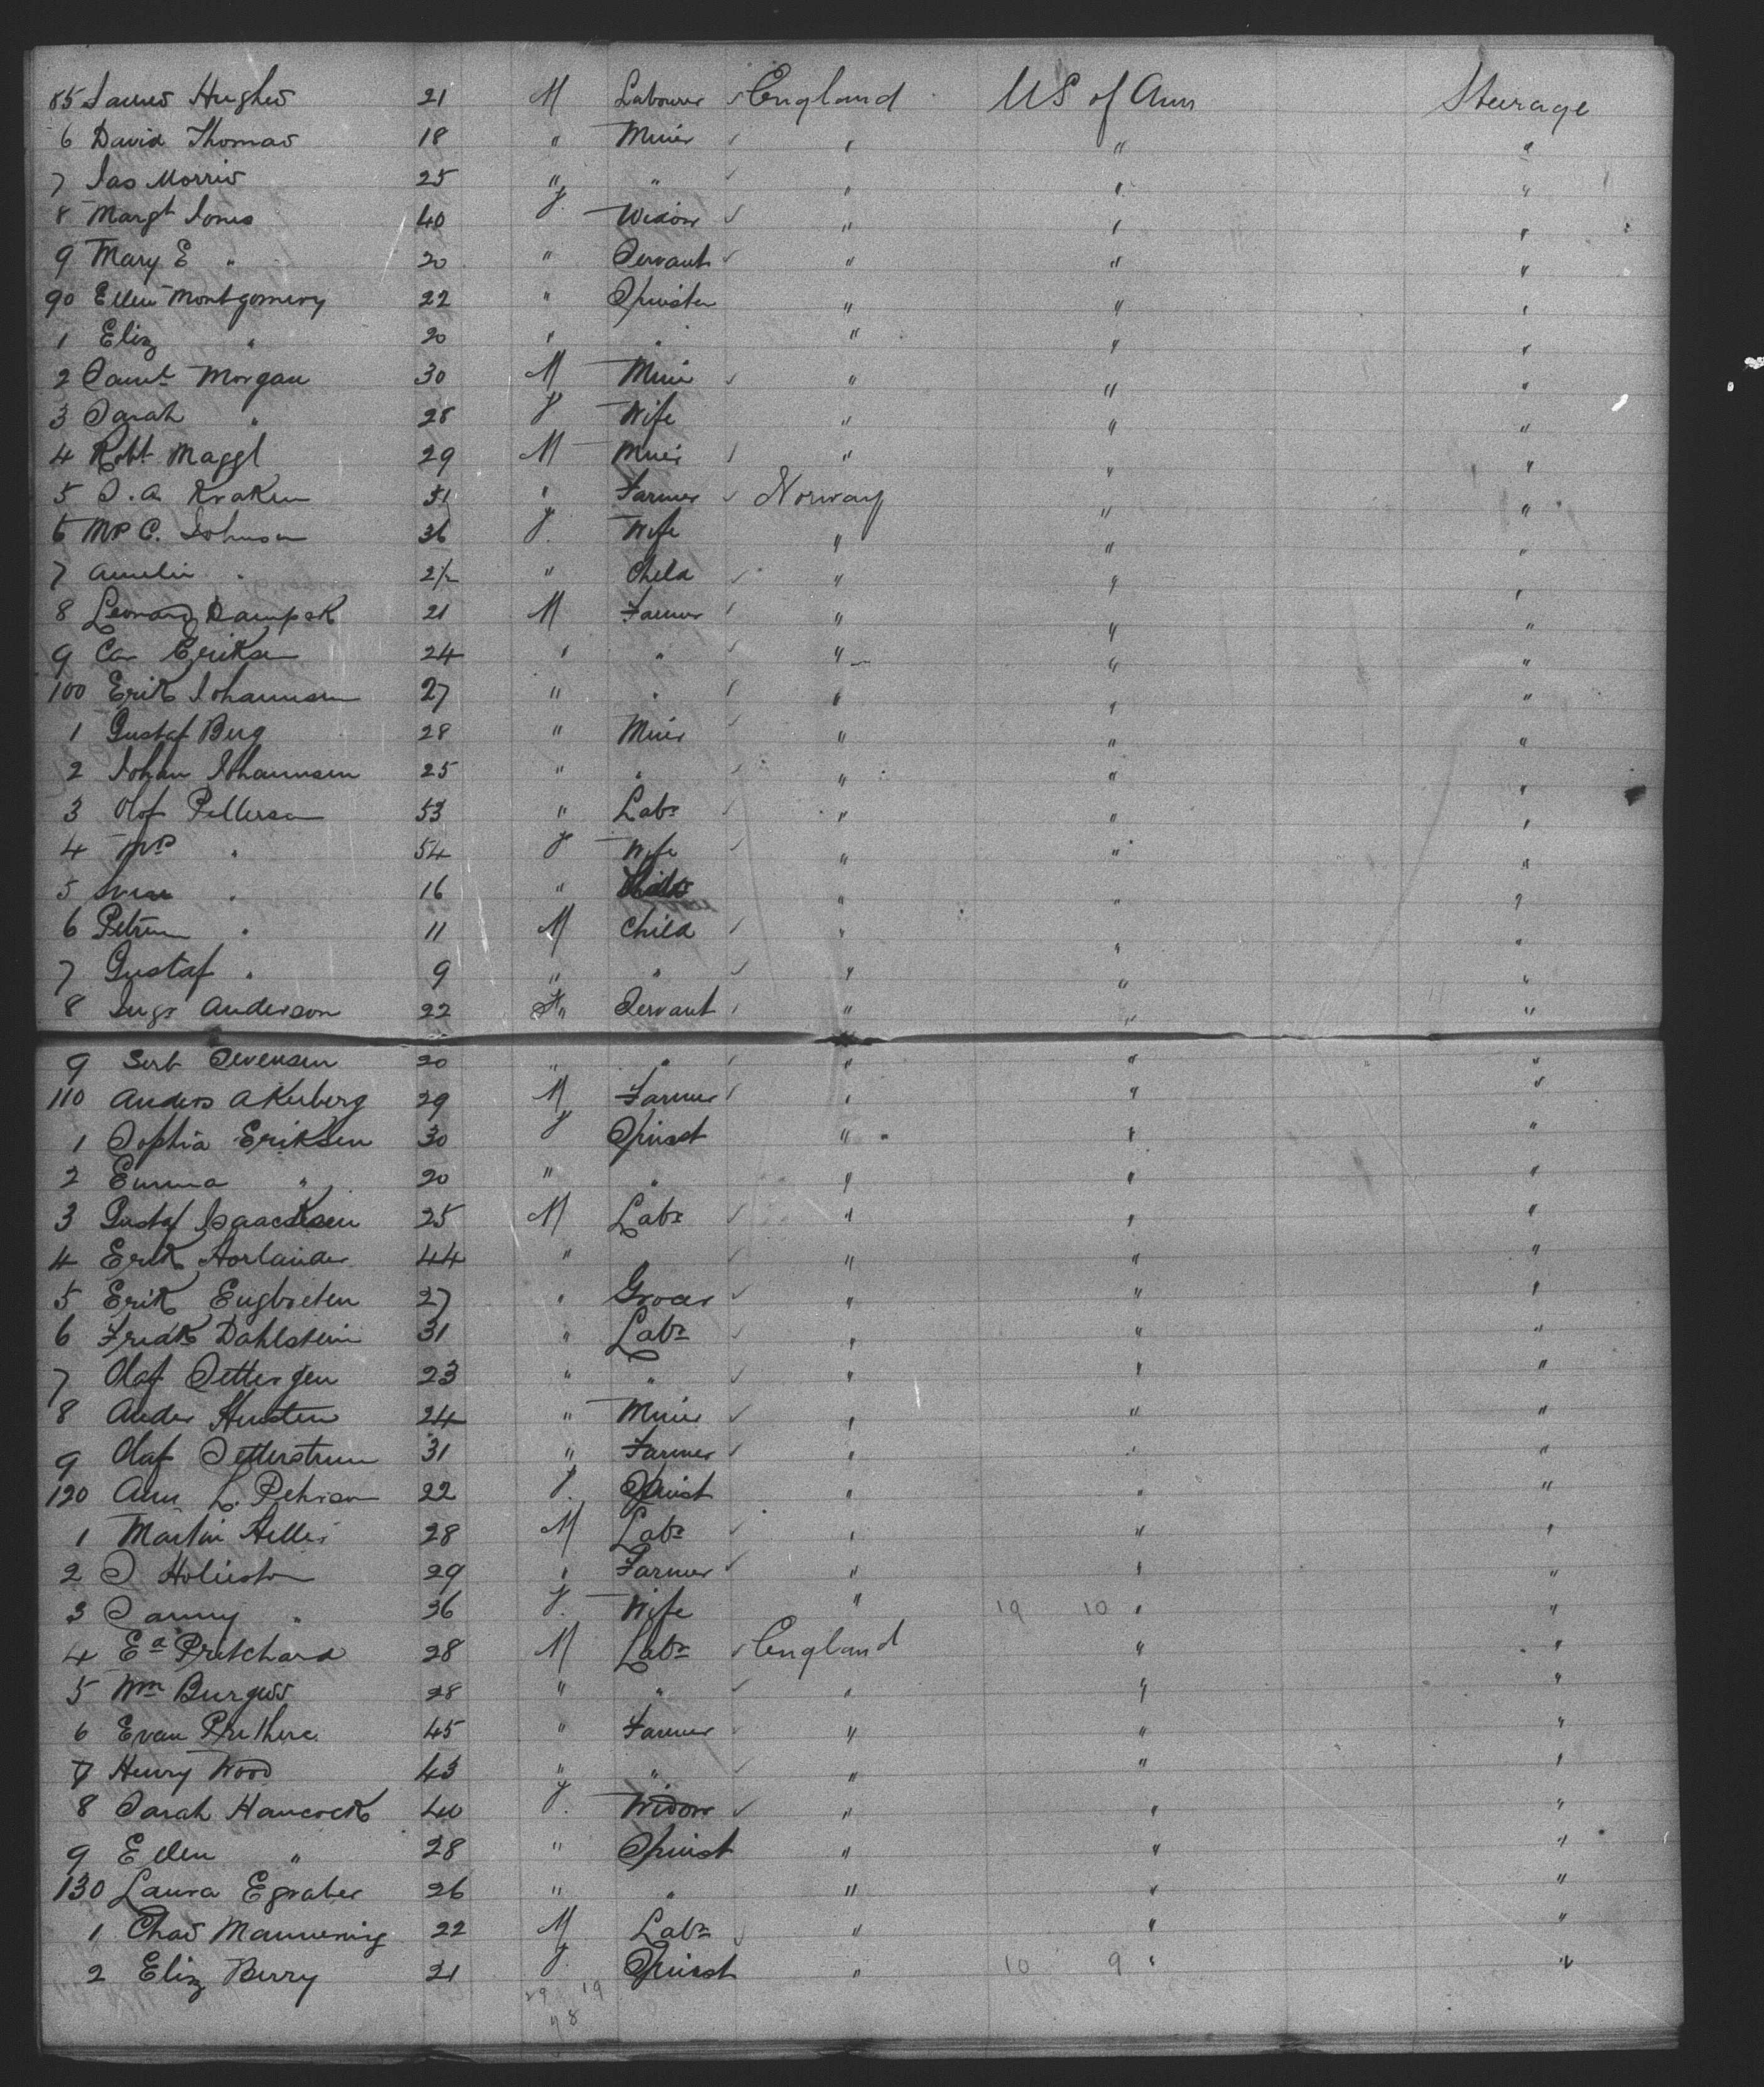 85 James Hughes 21 M Labourer ✓ England US of Am Steerage
6 David Thomas 18 " Miner ✓ " " "
7 Jas Morris 25 " " ✓ " " "
8 Margt Jones 40 F. Widow ✓ " " "
9 Mary E " 20 " Servant ✓ " " "
90 Ellen Montgomery 22 " Spinster " " "
1 Eliz " 20 " " " " "
2 Saml Morgan 30 M Miner ✓ " " "
3 Sarah " 28 F Wife " " "
4 Robt Maggl 29 M Miner ✓ " " "
5 O. A. Kraken 31 " Farmer ✓ Norway " "
6 Mrs C. Johnson 36 F. Wife " " "
7 Amelia " 2½ " Child ✓ " " "
8 Leonard 21 M Farmer ✓ " " "
9 Eriksen 24 " " ✓ " " "
100 Erik Johannsen 27 " " ✓ " " "
1 Gustaf Berg 28 " Miner ✓ " " "
2 Johan Johannsen 25 " " ✓ " " "
3 Olof Pellersen 53 " Labr ✓ " " "
4 Mrs " 54 F Wife ✓ " " "
5 " 16 " " " "
6 " 11 M Child ✓ " " "
7 Gustaf " 9 " " ✓ " " "
8 Inga Anderson 22 F" Servant ✓ " " "
9 Sevensen 20 " " ✓ " " "
110 Anders Akerberg 29 M Farmer ✓ " " "
1 Sophia Eriksen 30 F Spinst " " "
2 Emma " 20 " " " " "
3 Gustaf Isaacksen 25 M Labr ✓ " " "
4 Erik Horlander 44 " ✓ " " "
5 Erik 27 " Grocer ✓ " " "
6 Fredk Dahlstein 31 " Labr ✓ " " "
7 Olaf Settergen 23 " " ✓ " " "
8 Ander 24 " Miner ✓ " " "
9 Olaf Setterstrum 31 " Farmer ✓ " " "
120 Ann L. Pehrson 22 F. Spinst " " "
1 Martin Heller 28 M Labr ✓ " " "
2 S 29 " Farmer ✓ " " "
3 " 36 F. Wife " 19 10 " "
4 Ed Pritchard 28 M Labr ✓ England " "
5 Wm Burgess 28 " " ✓ " " "
6 Evan Prethere 45 " Farmer ✓ " " "
7 Henry Wood 43 " " ✓ " " "
8 Sarah Hancock 40 F. Widow ✓ " " "
9 Ellen " 28 " Spinst " " "
130 Laura Egraber 26 " " " " "
1 Chas Mannering 22 M Labr ✓ " " "
2 Eliz Berry 21 F. Spinst " 10 9 " "
29 19